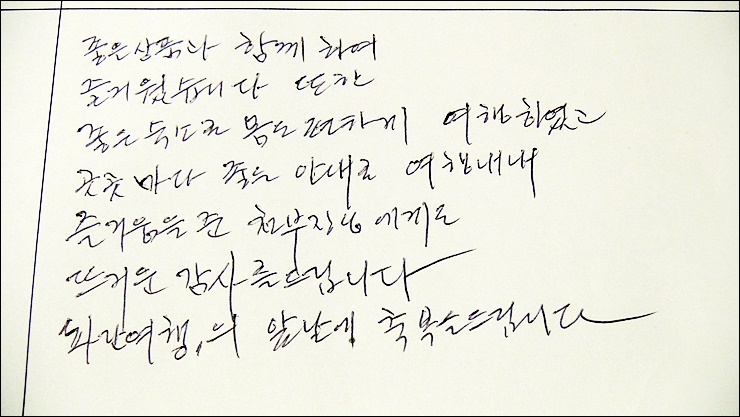 좋은 상품과 함께 하여
즐거웠습니다 또한
좋은 숙소로 몸도 편하게 여행하였고
곳곳마다 좋은 안내로 여행내내
즐거움을 준 천부장님에게도
뜨거운 감사를드립니다
파란여행,의 앞날에 축복을드립니다